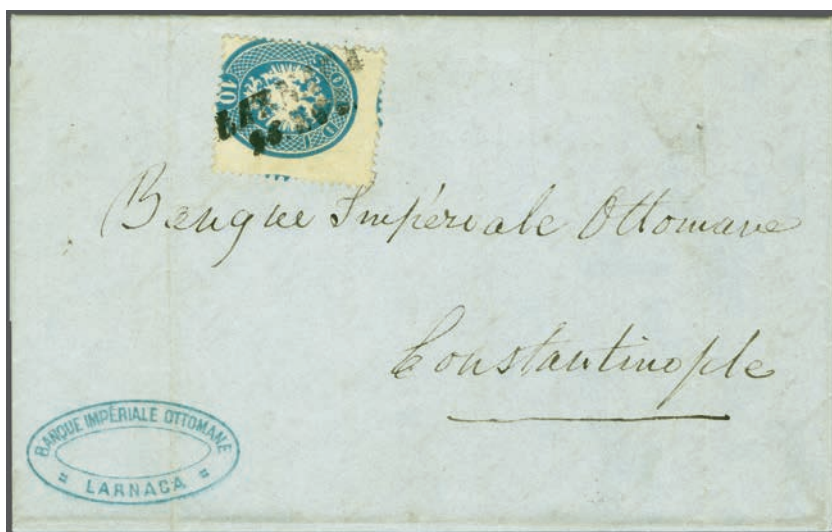 10
SO
10
Banque Impériale Ottomane
Constantinople
BANQUE IMPÉRIALE OTTOMANE
LARNACA